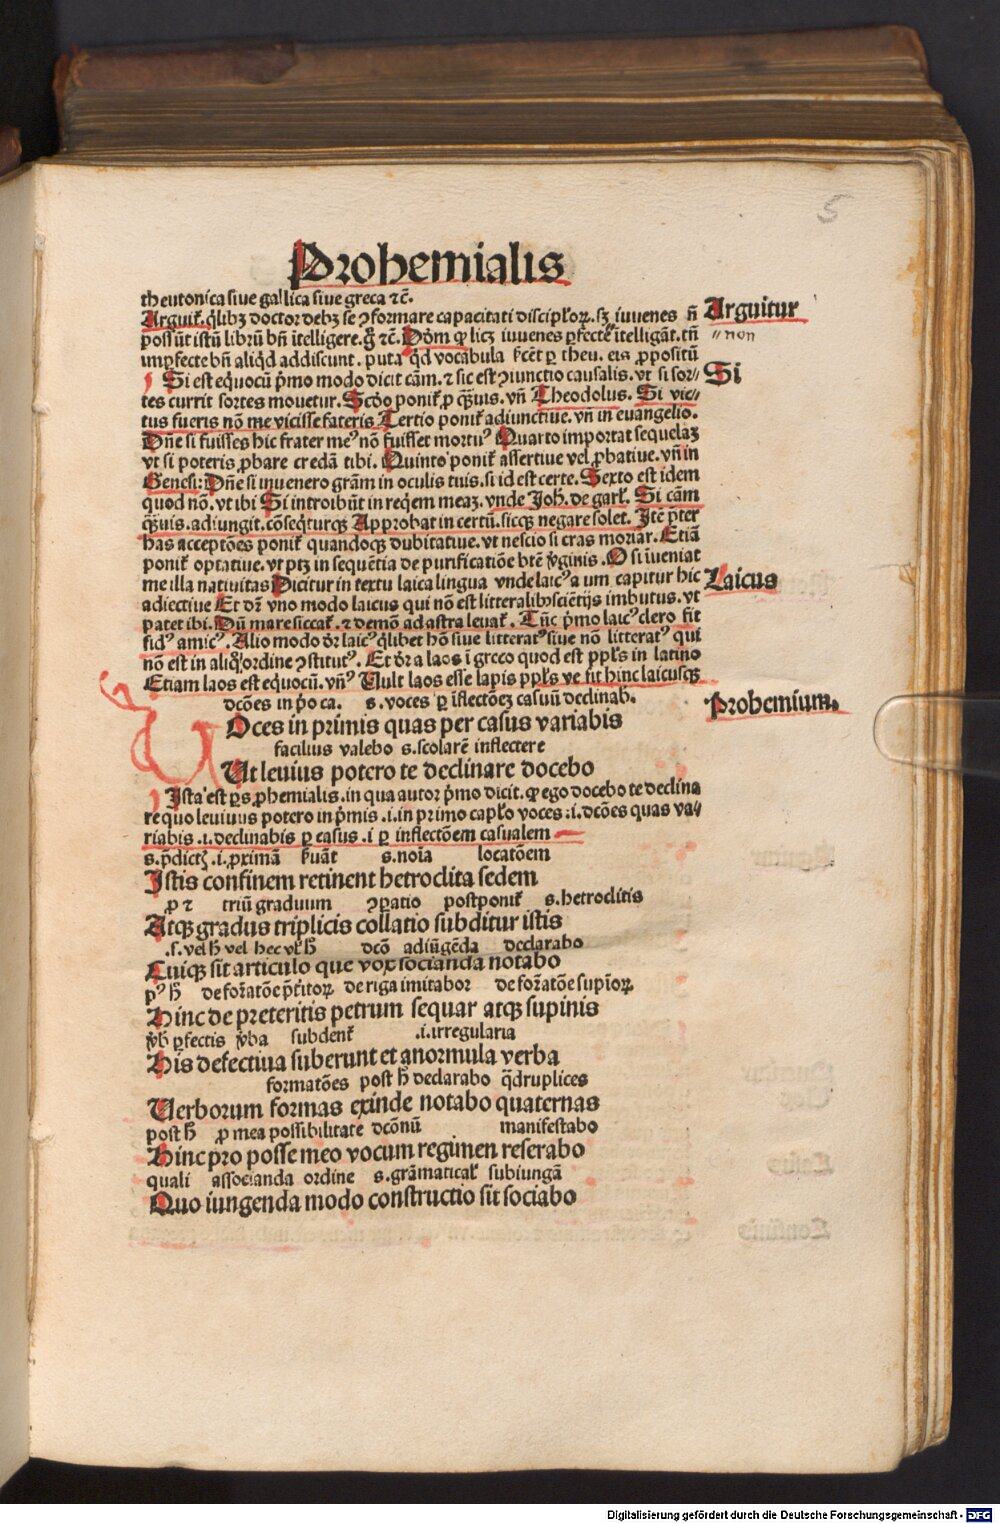 5
Prohemialis
theutonica siue gallica siue greca ⁊c̃.
Arguit᷑. q̃libꝫ doctor debꝫ se ꝯformare capacitati discipl̃oꝝ. sꝫ iuuenes n̄ Arguitur
possũt istũ librũ bñ ĩtelligere. g̃ ⁊c̃. Dõm ꝙ licꝫ iuuenes ꝑfecte ĩtelligãt. tñ non
imꝑfecte bñ aliq̃d addiscunt. puta q̃d vocabula fic̃ent ꝑ theu. eis ꝓpositũ
Si est equocũ p̃mo modo dicit cãm. ⁊ sic est ꝯiunctio causalis. vt si sor⸗ Si
tes currit sortes mouetur. Scd̃o ponit᷑ ꝓ q̃uis. vñ Theodolus. Si vic⸗
tus fueris nõ me vicisse fateris Tertio ponit᷑ adiunctiue. vñ in euangelio.
Dñe si fuisses hic frater meꝰ nõ fuisset mortuꝰ Quarto importat sequelaꝫ
vt si poteris ꝓbare credã tibi. Quinto ponit᷑ assertiue vel ꝓbatiue. vñ in
Genesi: Dñe si inuenero grãm in oculis tuis. si id est certe. Sexto est idem
quod nõ. vt ibi Si introibũt in reqẽm meaꝫ. vnde Joh̃. de garl̃. Si cãm
q̃uis. adiungit. cõseq̃turqꝫ Approbat in certũ. sicqꝫ negare solet. Itẽ p̃ter
has acceptões ponit᷑ quandoqꝫ dubitatiue. vt nescio si cras moriar. Etiã
ponit᷑ optatiue. vt ptꝫ in sequẽtia de purificatiõe btẽ v̓ginis. O si ĩueniat
me illa natiuitas Dicitur in textu laica lingua vnde laicꝰ a um capitur hic Laicus
adiectiue Et dr̃ vno modo laicus qui nõ est litteralibꝰ sciẽtijs imbutus. vt
patet ibi. Dũ mare siccat᷑. ⁊ demõ ad astra leuat᷑. Tũc p̃mo laicꝰ clero fit
fidꝰ amicꝰ. Alio modo dr̃ laicꝰ q̃libet hõ siue litteratꝰ siue nõ litteratꝰ qui
nõ est in aliq̃ ordine ꝯstitutꝰ. Et dr̃ a laos ĩ greco quod est ppl̃s in latino
Etiam laos est equocũ. vñꝰ Uult laos esse lapis ppl̃s ve fit hinc laicusqꝫ
dcões in p̃o ca. s. voces ꝑ ĩflectõeꝫ casuũ declinab. Prohemium.
Uoces in primis quas per casus variabis
facilius valebo s. scolarẽ inflectere
Ut leuius potero te declinare docebo
Ista est ꝑs ꝓhemialis. in qua autor p̃mo dicit. ꝙ ego docebo te declina
re quo leuiuus potero in p̃mis .i. in primo capl̃o voces .i. dcões quas va⸗
riabis .i. declinabis ꝑ casus .i. ꝑ inflectõem casualem
s. p̃dictꝭ .i. ꝓximã s. noĩa locatõem
Istis confinem retinent hetroclita sedem
ꝓ ⁊ triũ graduum ꝯꝑatio postponit᷑ s. hetroclitis
Atqꝫ gradus triplicis collatio subditur istis
.s. vel h̃ vel hec vl̃ h̃ dcõ adiũgẽda declarabo
Cuiqꝫ sit articulo que vox socianda notabo
pꝰ h̃ de for̃atõe p̃t̃itoꝝ de riga imitabor de for̃atõe supĩoꝝ
Hinc de preteritis petrum sequar atqꝫ supinis
ꝑfectis v̓ba subdent᷑ .i. irregularia
His defectiua suberunt et anormula verba
formatões post h̃ declarabo q̃druplices
Uerborum formas exinde notabo quaternas
post h̃ ꝓ mea possibilitate dcõnũ manifestabo
Hinc pro posse meo vocum regimen reserabo
quali associanda ordine s. grãmatical᷑ subiungã
Quo iungenda modo constructio sit sociabo
Digitalisierung gefördert durch die Deutsche Forschungsgemeinschaft - DFG